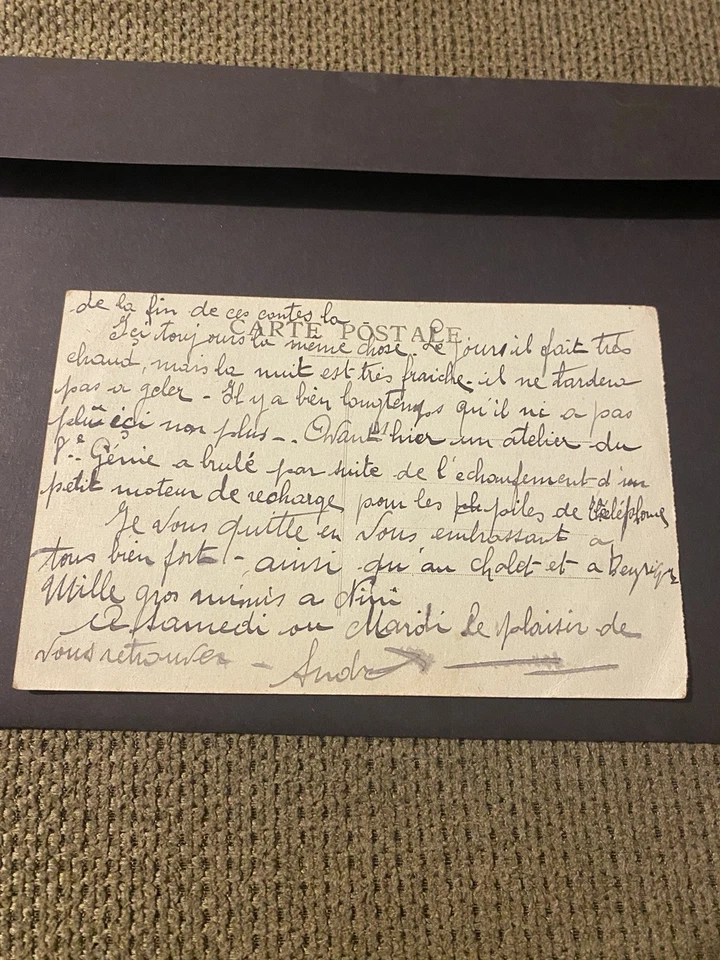 de la fin de ces contes la
CARTE POSTALE
Içi toujours la même chose. Le jours il fait très
chaud, mais la nuit est très fraiche. il ne tardera
pas a geler - Il y a bien longtemps qu'il ni a pas
plû içi non plus -. Avant hier un atelier du
8e Génie a brulé par suite de l'echaufement d'un
petit moteur de recharge pour les piles de téléphones
Je Vous quitte en Vous embrassant a
tous bien fort - ainsi qu'au chalet et a
Mille gros mimis a Nini
A samedi ou Mardi le plaisir de
Vous retrouver - André